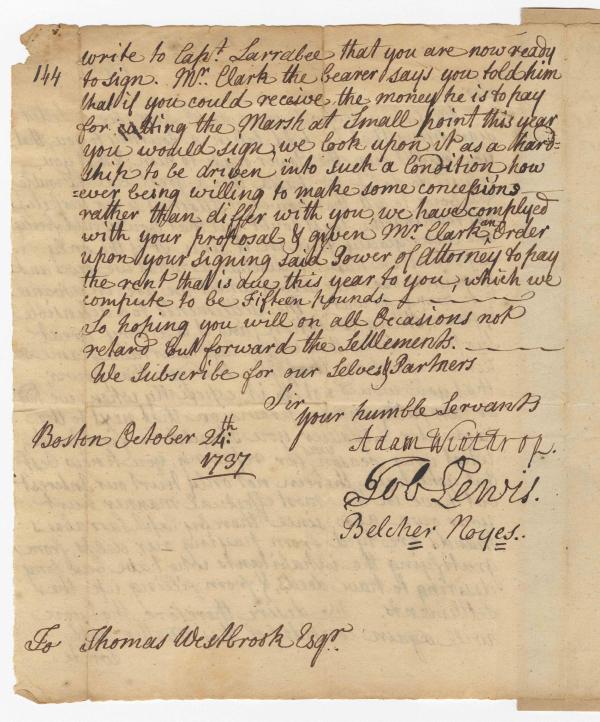 write to Capt. Larrabee that you are now ready
144 to sign. Mr. Clark the bearer says you told him
that if you could receive the money he is to pay
for cutting the Marsh at Small point this year
you would sign, we look upon it as a hard=
ship to be driven into such a Condition, how
=ever being willing to make some concessions
rather than differ with you, we have complyed
with your proposal & given Mr Clark an Order
upon your Signing said Power of Attorney to pay
the rent that is due this year to you, which we
compute to be Fifteen pounds
So hoping you will on all Occasions not
retard but forward the Settlements.
We Subscribe for our Selves & Partners
Sir
your humble Servants
Boston October 24th:
1737
Adam Winthrop.
Job Lewis.
Belcher Noyes.
To Thomas Westbrook Esqr.